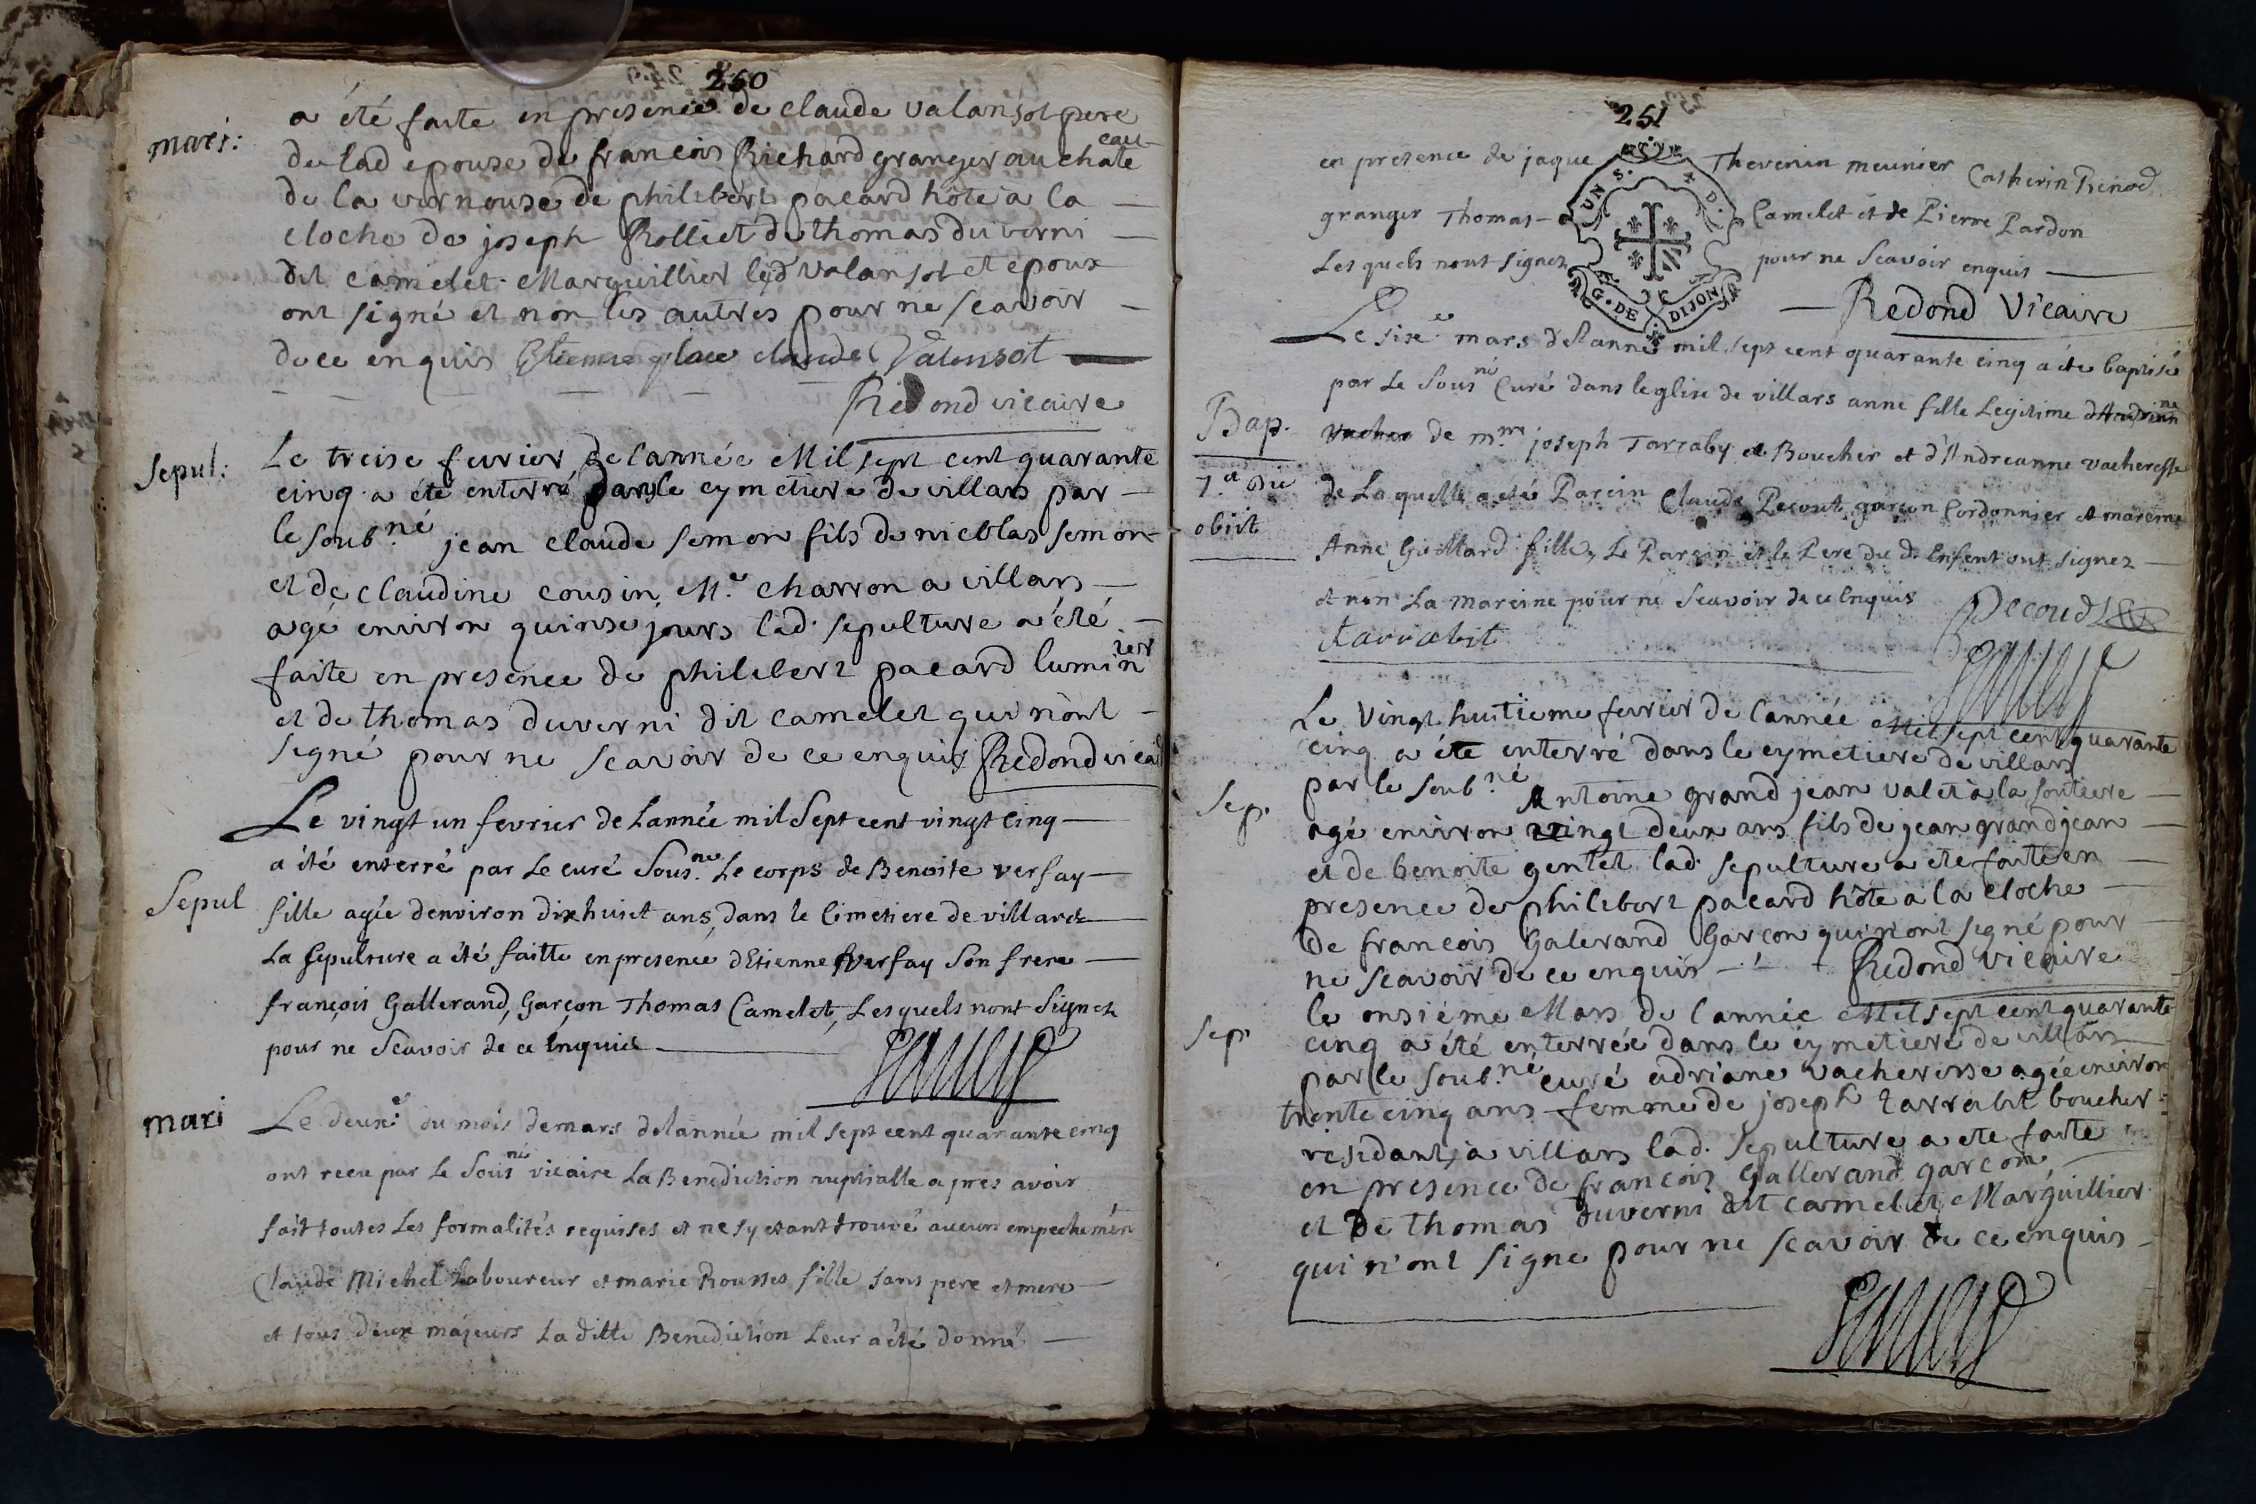 250
mari:
a été faite en presence de claude valansot pere
de lad epouse de francois Richard granger au chateau
de la vernouse de philibert pacard hôte a la
cloche de joseph Rolliet de thomas duverni
dit camelet Marguillier led valansot et epoux
ont signé et non les autres pour ne scavoir
de ce enquis Etienne place claude Valansot
Redond vicaire
sepul:
Le treise fevrier de l'année Mil sept cent quarante
cinq a été enterré dans le cymetiere de villars par
le soub.né jean claude semon fils de nicolas semon
et de claudine cousin M.e charron a villars
agé environ quinse jours lad. sepulture a été
faite en presence de philibert pacard luminier
et de thomas duverni dit camelet qui n'ont
signé pour ne scavoir de ce enquis Redond vicai
Sepul
Le vingt un fevrier de Lannée mil Sept cent vingt Cinq
a été enterré par Le curé Sous.né Le corps de Benoite versay
fille agée denviron dix huict ans, dans le Cimetiere de villards
La sepulture a été faitte en presence dEtienne versay Son frere
françois Gallerand, Garçon Thomas Camelet, Lesquels nont Signez
pour ne Scavoir de ce Enquis
mari
Le deux.e du mois demars delannée mil sept cent quarante cinq
ont receu par Le Sousné vicaire La Benediction nuptialle apres avoir
fait toutes Les formalités requises et ne sy etant trouvé aucun empechemen
Claude Michel Laboureur et marie Rousset fille sans pere et mere
et tous deux majeurs La ditte Benediction Leur a été donné
251
en presence de jaque Thevenin meunier Catherin Renod
granger Thomas Camelet et de Pierre Pardon
Les quels nont signez pour ne Scavoir enquis
G. DE DIJON
Redond Vicaire
Bap.
7.a die
obiit
Le sixe mars delanné mil sept cent quarante cinq a été baptisé
par Le Sousné Curé dans leglise de villars anne fille Legitime
de m.re joseph Tarraby Boucher et d'Andreanne vacheresse
de Laquelle a été Parein Claude Pecout garçon Cordonnier et mareine
Anne Guillard fille, Le Parein et le Pere du d. Enfent ont signez
et non La mareine pour ne Scavoir de ce Enquis
Pecoud
tarrabit
sep.
Le Vingt huitieme fevrier de l'année Mil sept cent quarante
cinq a été enterré dans le cymetiere de villars
par le soub.né Antoine grand jean valet à la soutiere
agé environ vingt deux ans fils de jean grandjean
et de benoite gentet lad. sepulture a été faite en
presence de philibert pacard hôte a la cloche
de francois Galerand Garcon qui n'ont signé pour
ne scavoir de ce enquis Redond vicaire
sep
le onsiéme Mars de l'année Mil sept cent quarante
cinq a été enterrée dans le cymetiere de villars
par le soub.né curé adriane vacheresse agée environ
trente cinq ans femme de joseph tarrabit boucher
residant, a villars lad. sepulture a eté faite
en presence de francois Gallerand garcon,
et De thomas duverni dit camelet, Marguillier
qui n'ont signe pour ne scavoir de ce enquis